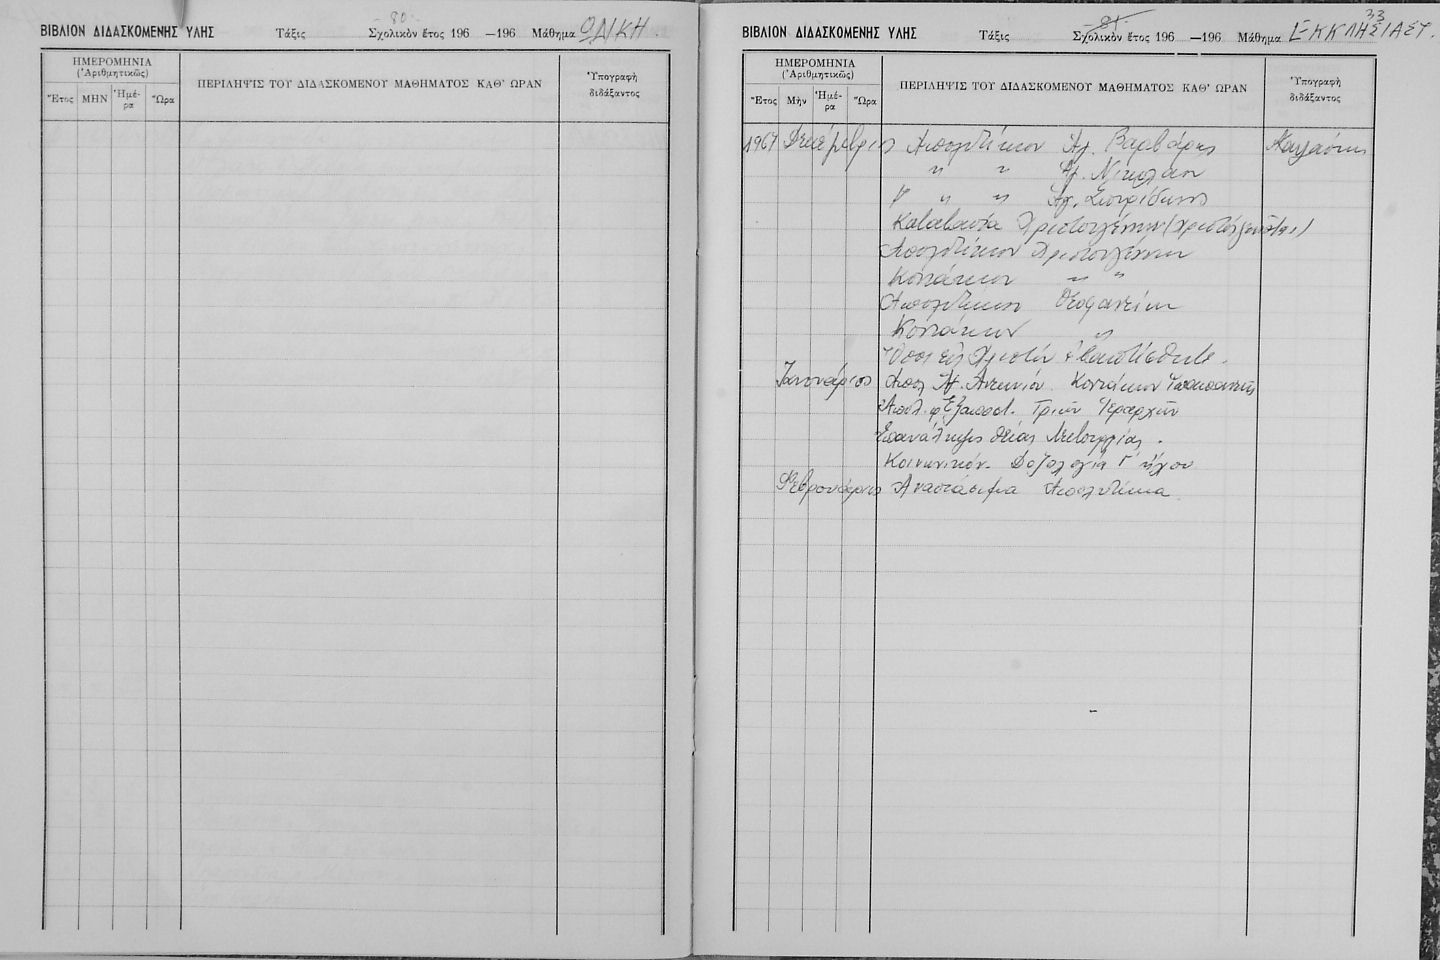 - 80 -
ΒΙΒΛΙΟΝ ΔΙΔΑΣΚΟΜΕΝΗΣ ΥΛΗΣ Τάξις Σχολικὸν ἔτος 196 —196 Μάθημα ΩΔΙΚΗ.
ΗΜΕΡΟΜΗΝΙΑ
(Ἀριθμητικῶς)
Ἔτος ΜΗΝ Ἡμέρα Ὥρα
ΠΕΡΙΛΗΨΙΣ ΤΟΥ ΔΙΔΑΣΚΟΜΕΝΟΥ ΜΑΘΗΜΑΤΟΣ ΚΑΘ' ΩΡΑΝ
Ὑπογραφὴ
διδάξαντος
- 81 -
33
ΒΙΒΛΙΟΝ ΔΙΔΑΣΚΟΜΕΝΗΣ ΥΛΗΣ Τάξις Σχολικὸν ἔτος 196 —196 Μάθημα ΕΚΚΛΗΣΙΑΣΤ.
ΗΜΕΡΟΜΗΝΙΑ
(Ἀριθμητικῶς)
Ἔτος Μὴν Ἡμέρα Ὥρα
ΠΕΡΙΛΗΨΙΣ ΤΟΥ ΔΙΔΑΣΚΟΜΕΝΟΥ ΜΑΘΗΜΑΤΟΣ ΚΑΘ' ΩΡΑΝ
Ὑπογραφὴ
διδάξαντος
1967 Δεκέμβριος Ἀπολυτίκιον Ἁγ. Βαρβάρας
" " Ἁγ. Νικολάου
" " " Ἁγ. Σπυρίδωνος
Καταβασία Χριστουγέννων (Χριστὸς γεννᾶται)
Ἀπολυτίκιον Χριστουγέννων
Κοντάκιον " "
Ἀπολυτίκιον Θεοφανείων
Κοντάκιον "
Ὅσοι εἰς Χριστὸν ἐβαπτίσθητε.
Ἰανουάριος Ἀπολ. Ἁγ. Ἀντωνίου. Κοντάκιον Ὑπαπαντῆς
Ἀπολ. Ἐξαποστ. Τριῶν Ἱεραρχῶν
Ἐπανάληψις Θείας Λειτουργίας.
Κοινωνικόν. Δοξολογία Γ' ἤχου
Φεβρουάριος Ἀναστάσιμα Ἀπολυτίκια.